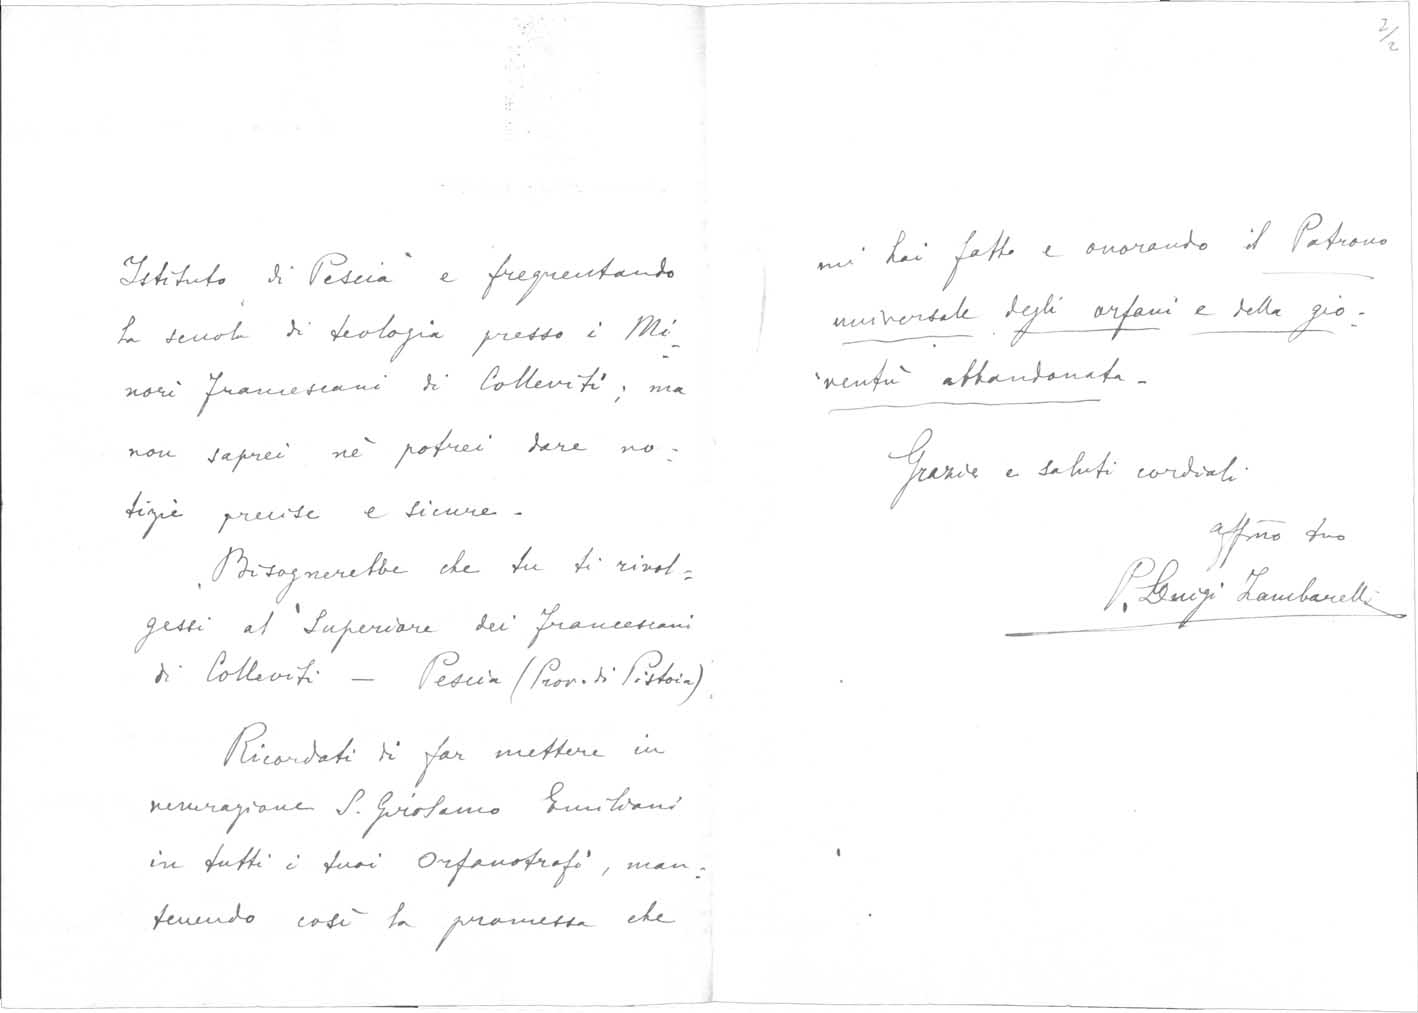 Istituto di Pescia e frequentando
la scuola di teologia presso i Mi=
nori Francescani di Colleviti; ma
non saprei nè potrei dare no=
tizie precise e sicure.
Bisognerebbe che tu ti rivol=
gessi al Superiore dei Francescani
di Colleviti — Pescia (Prov. di Pistoia)
Ricordati di far mettere in
venerazione S. Girolamo Emiliani
in tutti i tuoi Orfanotrofi, man=
tenendo così la promessa che
2/2
mi hai fatto e onorando il Patrono
universale degli orfani e della gio=
ventù abbandonata.
Grazie e saluti cordiali
affmo tuo
P. Luigi Zambarelli